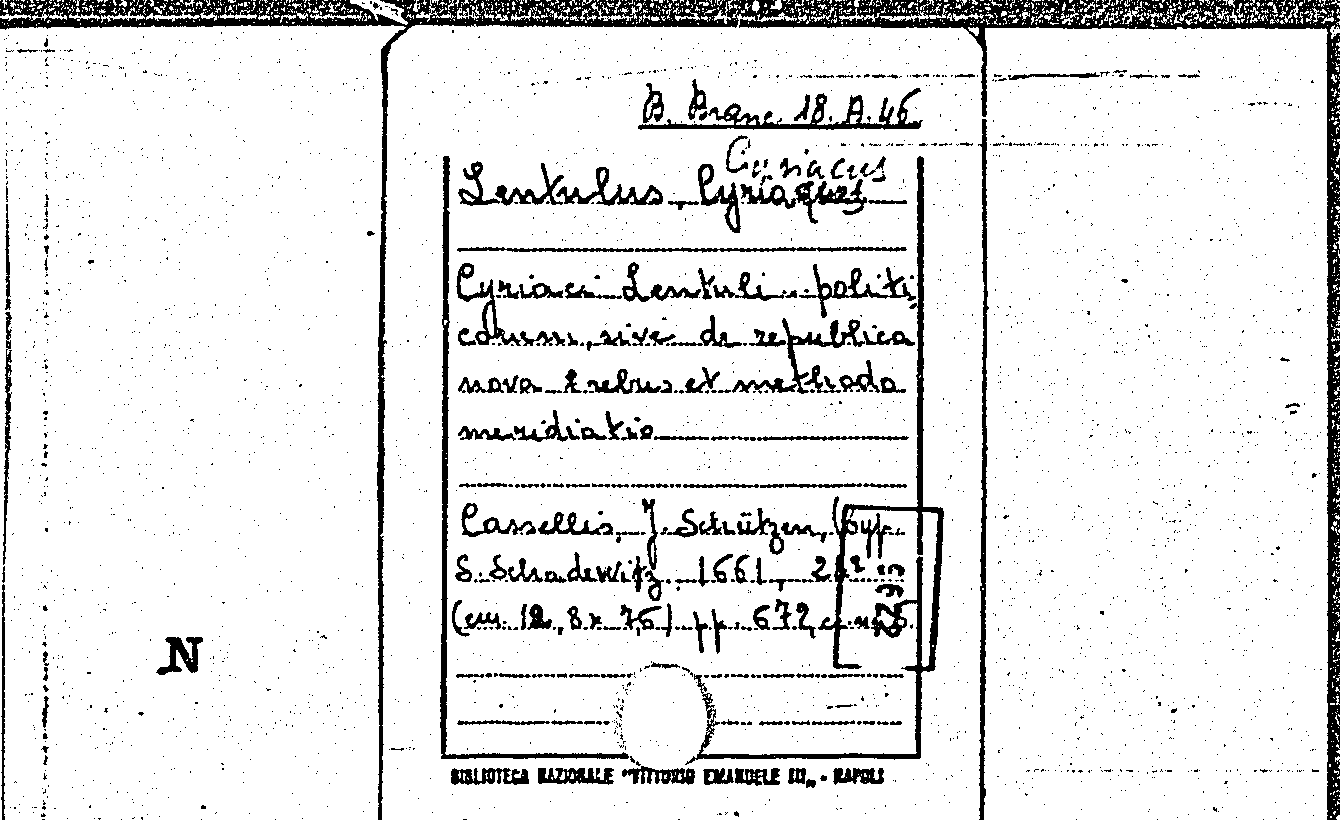 B. Branc. 18. A. 46
Cyriacus
Lentulus, Cyriaques
Cyriaci Lentuli ... politi
corum, sive de republica
nova rebus et methodo
meridiatio
Cassellis, J. Schützen, (typ.
S. Schadewitz, 1661, 24º
(cm. 12,8 x 7,6) pp. 672, c. n. 5.
N
BIBLIOTECA NAZIONALE "VITTORIO EMANUELE III„ - NAPOLI